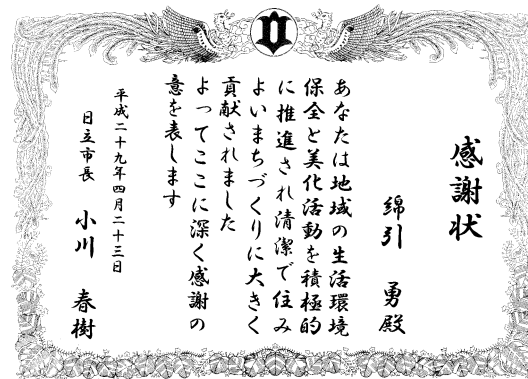 感謝状
綿引 勇殿
あなたは地域の生活環境
保全と美化活動を積極的
に推進され清潔で住み
よいまちづくりに大きく
貢献されました
よってここに深く感謝の
意を表します
平成二十九年四月二十三日
日立市長 小川 春樹